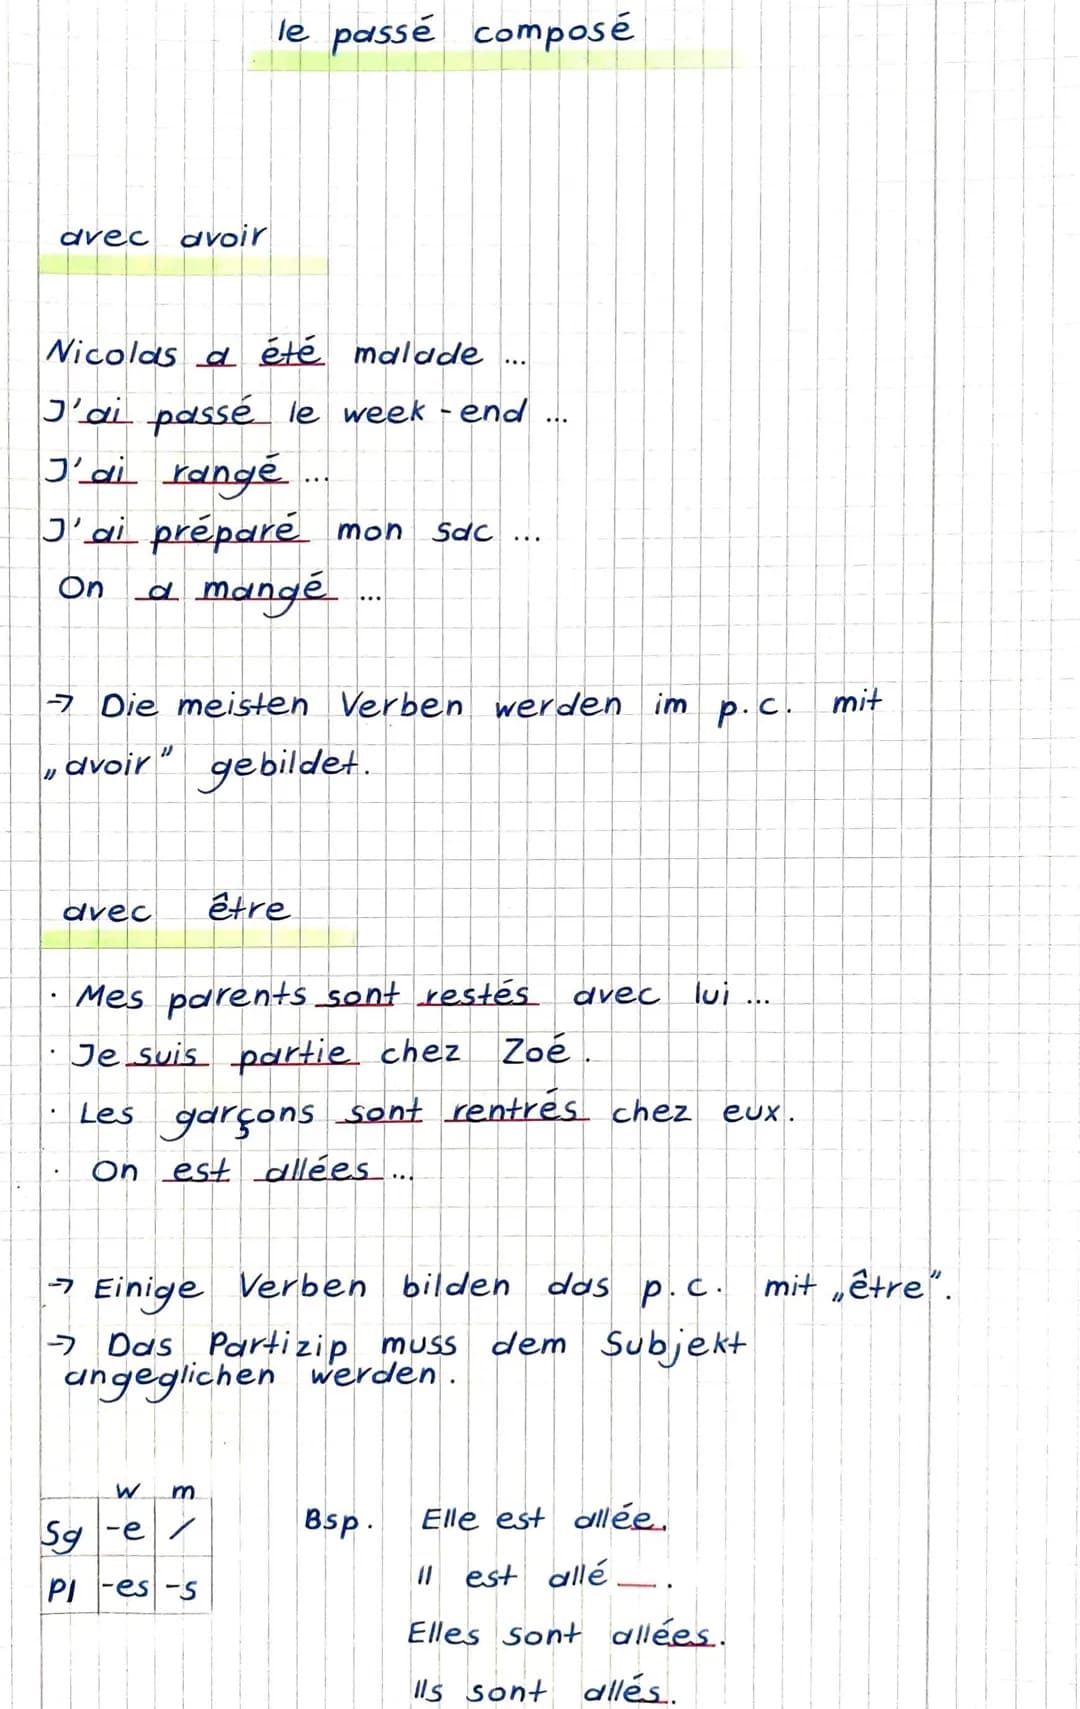 le passé composé
avec avoir
Nicolas a été malade ...
J'ai passé le week-end ...
J'ai rangé ...
J'ai préparé mon sac ...
On a mangé ...
→ Die meisten Verben werden im p.c. mit
„avoir" gebildet.
avec être
· Mes parents sont restés avec lui ...
· Je suis partie chez Zoé.
· Les garçons sont rentrés chez eux.
· On est allées ...
→ Einige Verben bilden das p.c. mit „être".
→ Das Partizip muss dem Subjekt
angeglichen werden.
w m
Sg -e /
Pl -es -s
Bsp. Elle est allée.
Il est allé _.
Elles sont allées.
Ils sont allés.